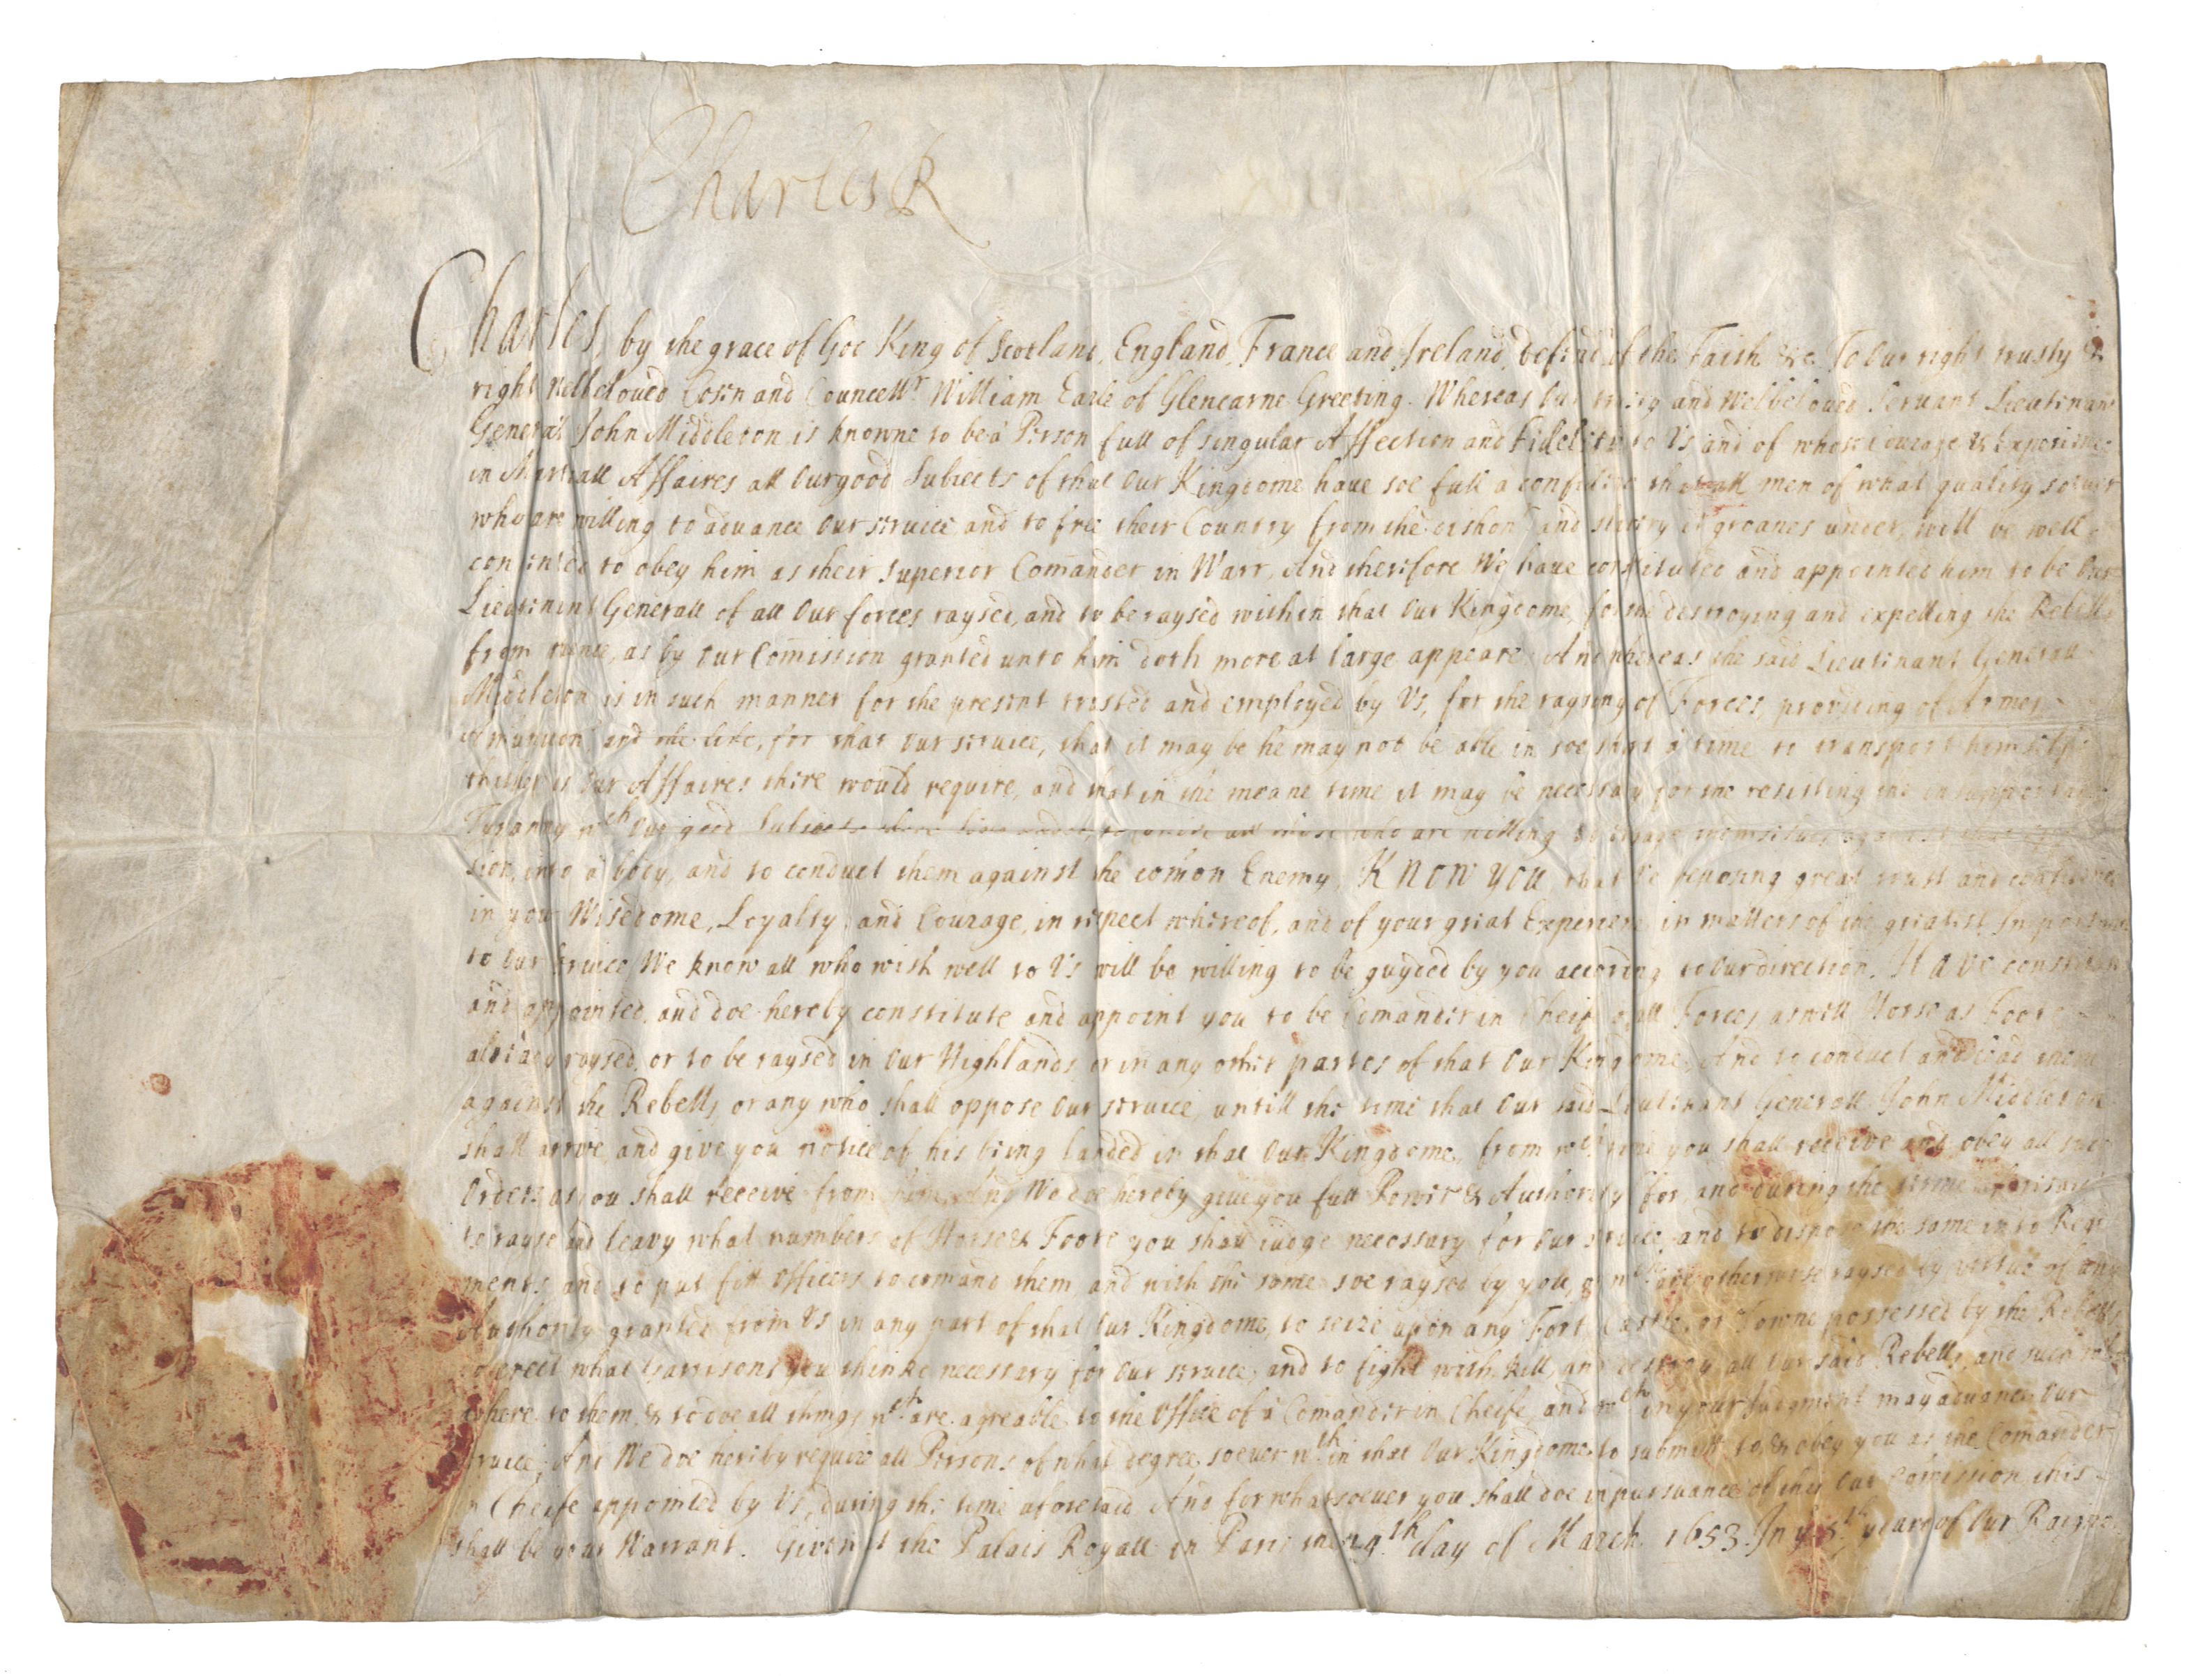 Charles R
Charles, by the grace of God King of Scotland, England, France and Ireland, defend of the Faith &c. To Our right trusty &
right welbeloued Cosin and Councellr William Earle of Glencarne Greeting. Whereas Our trusty and Welbeloued Seruant Lieutenant
Generall John Middleton is knowne to be a Person full of singular Affection and Fidelity to Vs and of whose Courage & Experience
in Martiall Affaires all Our good Subiects of that Our Kingdome haue soe full a confidence that all men of what quality soeuer
who are willing to aduance Our seruice and to free their Country from the dishonr and slavery it groanes under, will be well
contented to obey him as their Superior Comander in Warr, And therefore We haue constituted and appointed him to be Our
Lieutenant Generall of all Our forces raysed, and to be raysed within that Our Kingdome, for the destroying and expelling the Rebells
from thence, as by Our Comission granted unto him doth more at large appeare And whereas the said Lieutenant Generall
Middleton is in such manner for the present trusted and employed by Vs, for the raysing of Forces, providing of Armes
Amunition and the like, for that Our seruice, that it may be he may not be able in soe short a time to transport himselfe
thither as Our Affaires there would require, and that in the meane time it may be necessary for the resisting the insupportable
Tyranny wch Our good Subiects there live under, to unite all those who are willing to engage themselues against
sion, into a body, and to conduct them against the comon Enemy, KNOW YOU, that We reposing great trust and confidence
in your Wisedome, Loyalty, and Courage, in respect whereof, and of your great Experience in matters of the greatest Importance
to Our seruice We know all who wish well to Vs will be willing to be guyded by you according to Our direction. HAVE constituted
and appointed, and doe hereby constitute and appoint you to be Comander in Cheife of all Forces aswell Horse as Foote
already raysed, or to be raysed in Our Highlands or in any other partes of that Our Kingdome, And to conduct and lead them
against the Rebells, or any who shall oppose Our seruice, untill the time that Our said Lieutenant Generall John Middleton
shall arrive, and give you notice of his being landed in that Our Kingdome, from wch time you shall receive and obey all such
Orders as you shall receive from him, And We doe hereby giue you full Power & Authority for, and during the terme aforesaid
to rayse and leavy what numbers of Horse & Foote you shall iudge necessary for Our seruice, and to dispose the same into Regi-
ments, and to put fitt Officers to comand them, and with the same soe raysed by you, or wch are otherwise raysed by vertue of any
Authority granted from Vs in any part of that Our Kingdome, to seize upon any Fort, Castle, or Towne possessed by the Rebells,
to erect what Garrisons you thinke necessary for Our seruice, and to fight with, kill, and destroy all Our said Rebells, and such
adhere to them, & to doe all things wch are agreable to the Office of a Comander in Cheife, and wch in your Iudgment may aduance Our
seruice, And We doe hereby require all Persons of what degree soeuer wthin that Our Kingdome, to submitt to, & obey you as the Comander
in Cheife appointed by Vs, during the time aforesaid And for whatsoeuer you shall doe in pursuance of this Our Comission this
shall be your Warrant. Given at the Palais Royall in Paris the 4th day of March 1653. In ye 5th yeare of Our Raigne.